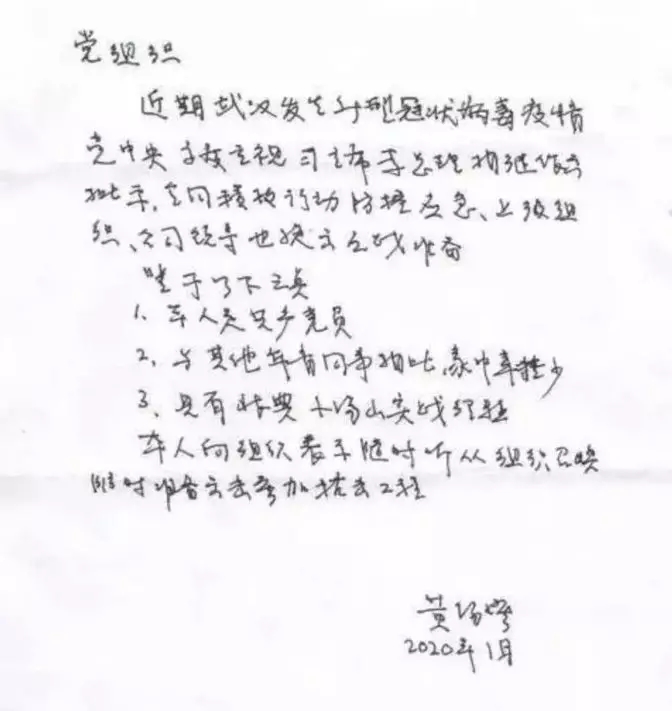 党组织
近期武汉发生新型冠状病毒疫情
党中央高度重视 习主席李总理相继作出
批示,全国积极行动防控应急、上级组
织、公司领导也提出应战准备
鉴于以下三点
1、本人是共产党员
2、与其他年青同事相比,家中牵挂少
3、具有非典小汤山实战经验
本人向组织表示随时听从组织召唤
随时准备出击参加抗击工程
黄
2020年1月